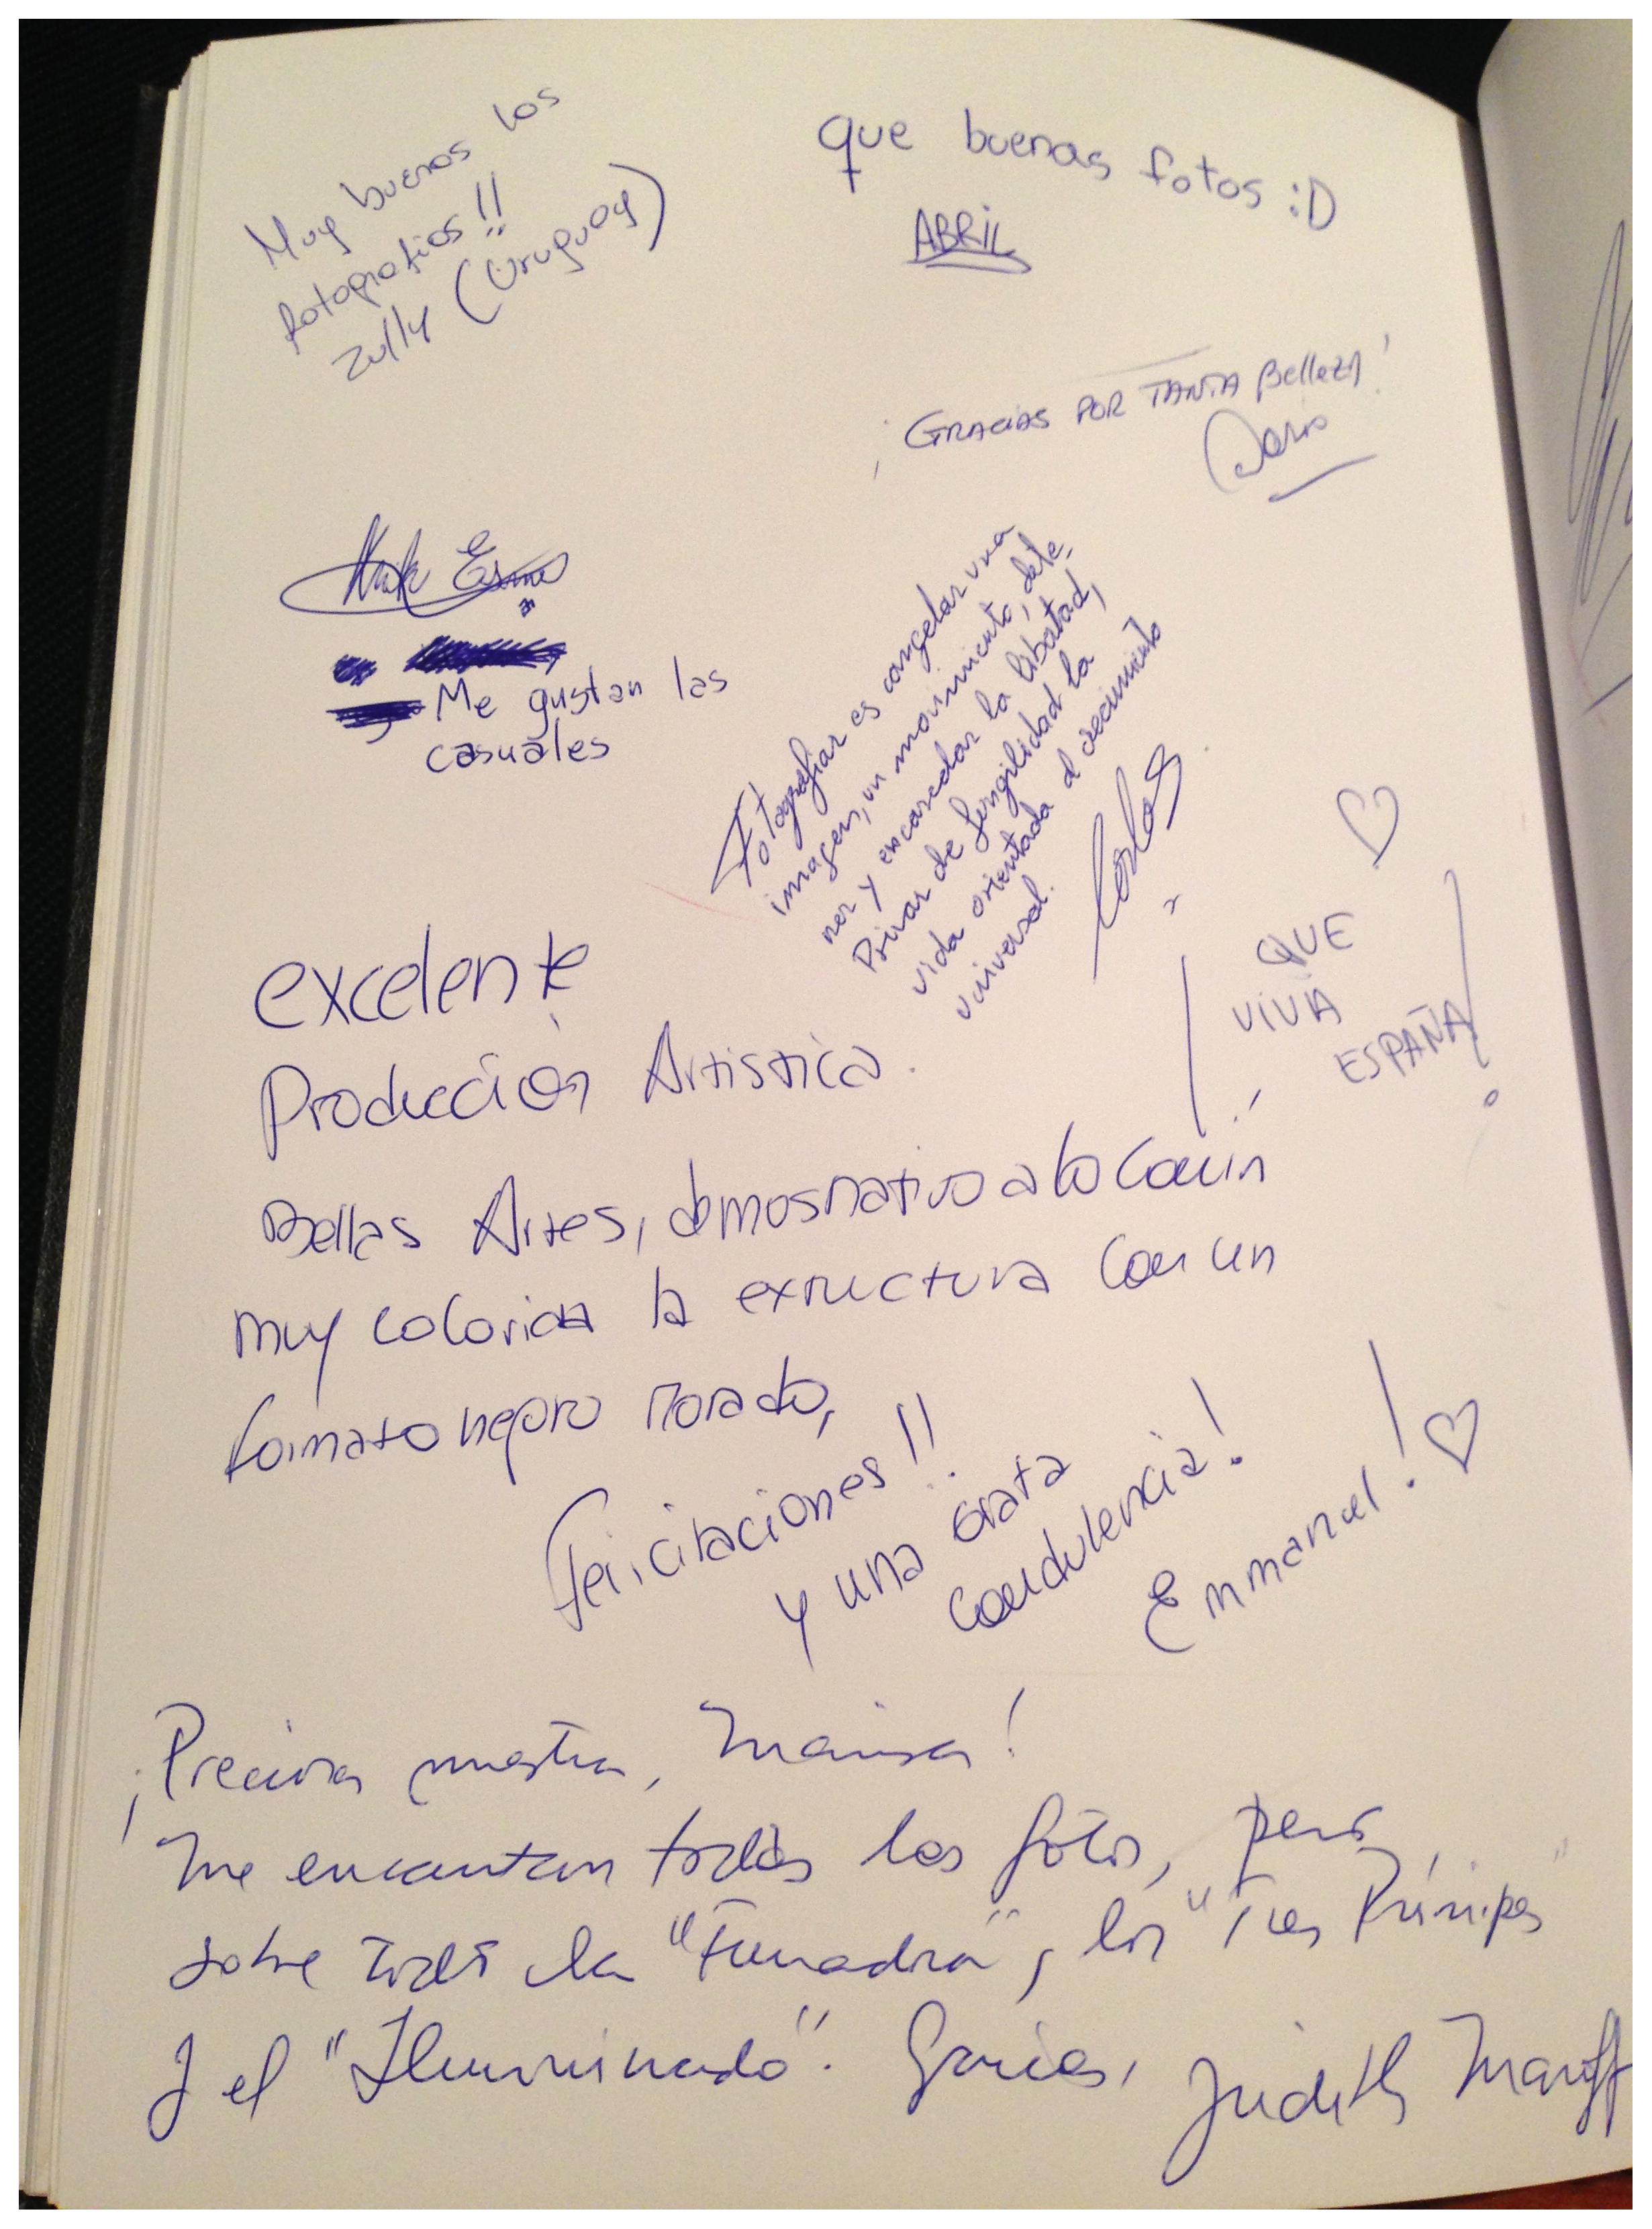 Muy buenas las
fotografias!!
Zully (Uruguay)
que buenas fotos :D
ABRIL
¡GRACIAS POR TANTA Belleza!
Dario
Me gustan las
casuales
Fotografiar es congelar una
imagen, un movimiento, dete,
ner y encarcelar la libertad,
Privar de fungilidad la
vida orientada al crecimiento
universal.
Carlos
¡QUE
VIVA
ESPAÑA!
excelente
Producción Artistica.
Bellas Artes,
muy colorida la extructura con un
formato negro morado,
Felicitaciones!!
y una Grata
condulencia!
Emmanuel!
¡Preciosa muestra, Marisa!
Me encantan todas las fotos, pero,
sobre todo la, los "Tres Príncipes"
y el "Iluminado". Gracias,
Judith